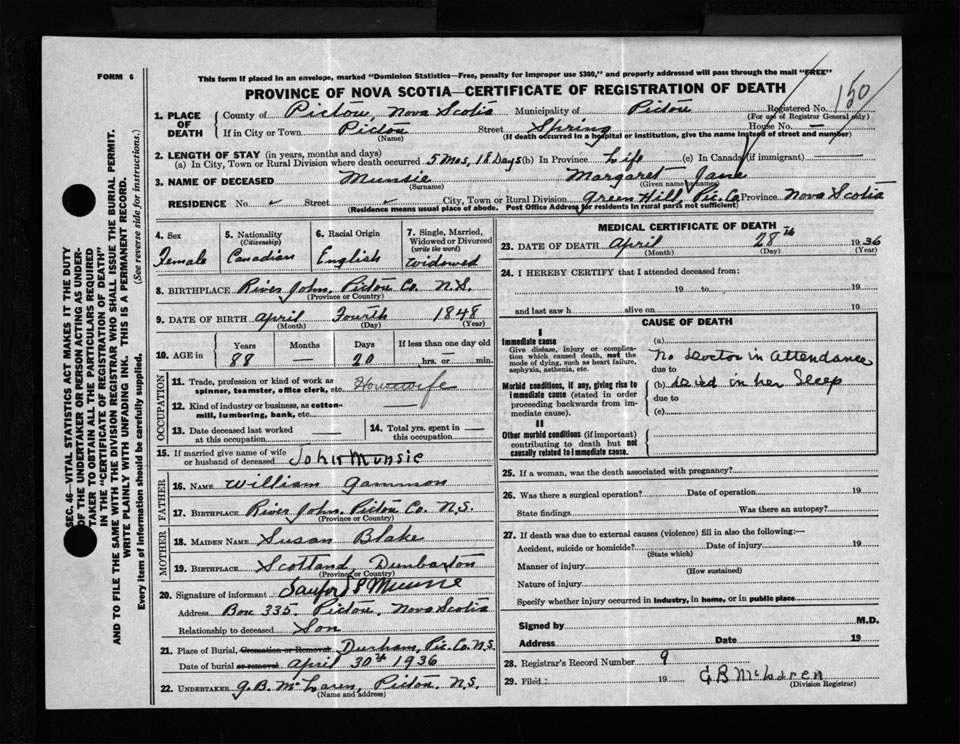 FORM 6
This form if placed in an envelope, marked "Dominion Statistics—Free, penalty for improper use $300," and properly addressed will pass through the mail "FREE"
PROVINCE OF NOVA SCOTIA—CERTIFICATE OF REGISTRATION OF DEATH
Registered No. 150
(For use of Registrar General only)
1. PLACE OF DEATH
County of Pictou, Nova Scotia Municipality of Pictou
If in City or Town Pictou Street Spring House No. —
(Name) (If death occurred in a hospital or institution, give the name instead of street and number)
2. LENGTH OF STAY (in years, months and days)
(a) In City, Town or Rural Division where death occurred 5 Mos, 18 Days (b) In Province Life (c) In Canada (if immigrant)
3. NAME OF DECEASED Munsie Margaret Jane
(Surname) (Given name or names)
RESIDENCE No. Street City, Town or Rural Division Green Hill, Pic. Co. Province Nova Scotia
(Residence means usual place of abode. Post Office Address for residents in rural parts not sufficient)
4. Sex Female
5. Nationality (Citizenship) Canadian
6. Racial Origin English
7. Single, Married, Widowed or Divorced (write the word) Widowed
8. BIRTHPLACE River John, Pictou Co. N.S.
(Province or Country)
9. DATE OF BIRTH April Fourth 1848
(Month) (Day) (Year)
10. AGE in Years Months Days If less than one day old
88 — 20 hrs. or min.
OCCUPATION
11. Trade, profession or kind of work as spinner, teamster, office clerk, etc. Housewife
12. Kind of industry or business, as cotton-mill, lumbering, bank, etc.
13. Date deceased last worked at this occupation
14. Total yrs. spent in this occupation
15. If married give name of wife or husband of deceased John Munsie
FATHER
16. NAME William Gammon
17. BIRTHPLACE River John, Pictou Co. N.S.
(Province or Country)
MOTHER
18. MAIDEN NAME Susan Blake
19. BIRTHPLACE Scotland, Dunbarton
(Province or Country)
20. Signature of informant Sanford
Address Box 335, Pictou, Nova Scotia
Relationship to deceased Son
21. Place of Burial, Cremation or Removal Durham, Pic. Co. N.S.
Date of burial or removal April 30th 1936
22. UNDERTAKER G. B. McLaren, Pictou, N.S.
(Name and address)
MEDICAL CERTIFICATE OF DEATH
23. DATE OF DEATH April 28th 1936
(Month) (Day) (Year)
24. I HEREBY CERTIFY that I attended deceased from:
19 to 19
and last saw h alive on 19
CAUSE OF DEATH
I
Immediate cause
Give disease, injury or complication which caused death, not the mode of dying, such as heart failure, asphyxia, asthenia, etc.
Morbid conditions, if any, giving rise to immediate cause (stated in order proceeding backwards from immediate cause).
II
Other morbid conditions (if important) contributing to death but not causally related to immediate cause.
(a)
No Doctor in Attendance
due to
(b) Deied in her Sleep
due to
(c)
25. If a woman, was the death associated with pregnancy?
26. Was there a surgical operation? Date of operation 19
State findings Was there an autopsy?
27. If death was due to external causes (violence) fill in also the following:—
Accident, suicide or homicide? Date of injury 19
(State which)
Manner of injury
(How sustained)
Nature of injury
Specify whether injury occurred in industry, in home, or in public place
Signed by M.D.
Address Date 19
28. Registrar's Record Number 9
29. Filed 19 G B McLaren
(Division Registrar)
SEC. 46—VITAL STATISTICS ACT MAKES IT THE DUTY
OF THE UNDERTAKER OR PERSON ACTING AS UNDER-
TAKER TO OBTAIN ALL THE PARTICULARS REQUIRED
IN THE "CERTIFICATE OF REGISTRATION OF DEATH"
AND TO FILE THE SAME WITH THE DIVISION REGISTRAR WHO SHALL ISSUE THE BURIAL PERMIT.
WRITE PLAINLY WITH UNFADING INK. THIS IS A PERMANENT RECORD.
Every item of information should be carefully supplied. (See reverse side for instructions.)